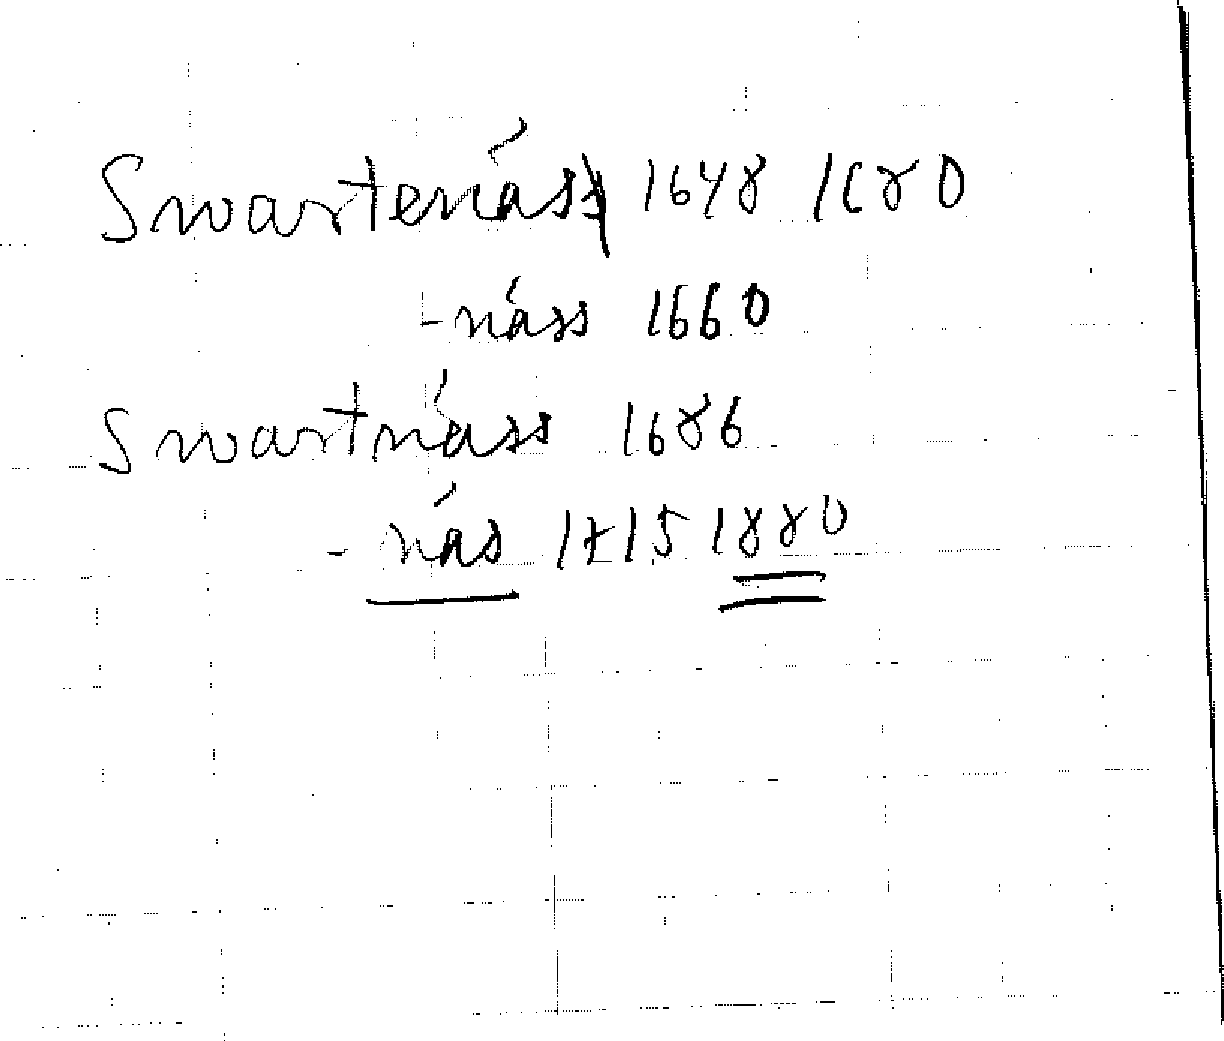 Swartenäs 1648 1680
-näss 1660
Swartnäss 1686
-näs 1715 1880